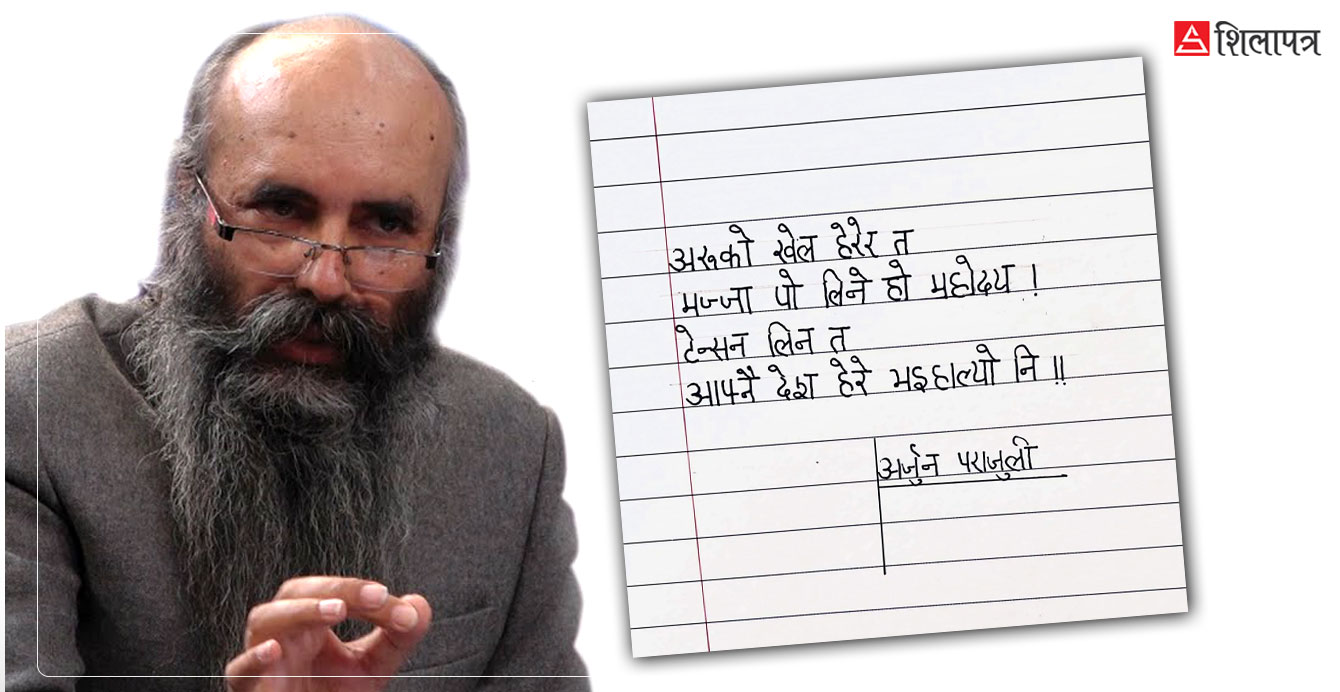 शिलापत्र
अरुको खेल हेरेर त
मज्जा पो लिने हो महोदय !
टेन्सन लिन त
आफ्नै देश हेरे भइहाल्यो नि !!
अर्जुन पराजुली